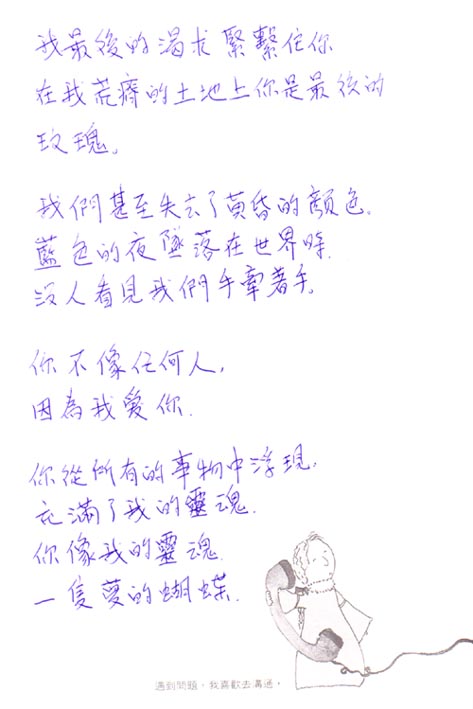 我最後的渴求緊繫住你
在我荒瘠的土地上你是最後的
玫瑰。
我們甚至失去了黃昏的顏色。
藍色的夜墜落在世界時.
沒人看見我們手牽著手。
你不像任何人,
因為我愛你.
你從所有的事物中浮現,
充滿了我的靈魂.
你像我的靈魂
一隻夢的蝴蝶.
遇到問題,我喜歡去溝通,